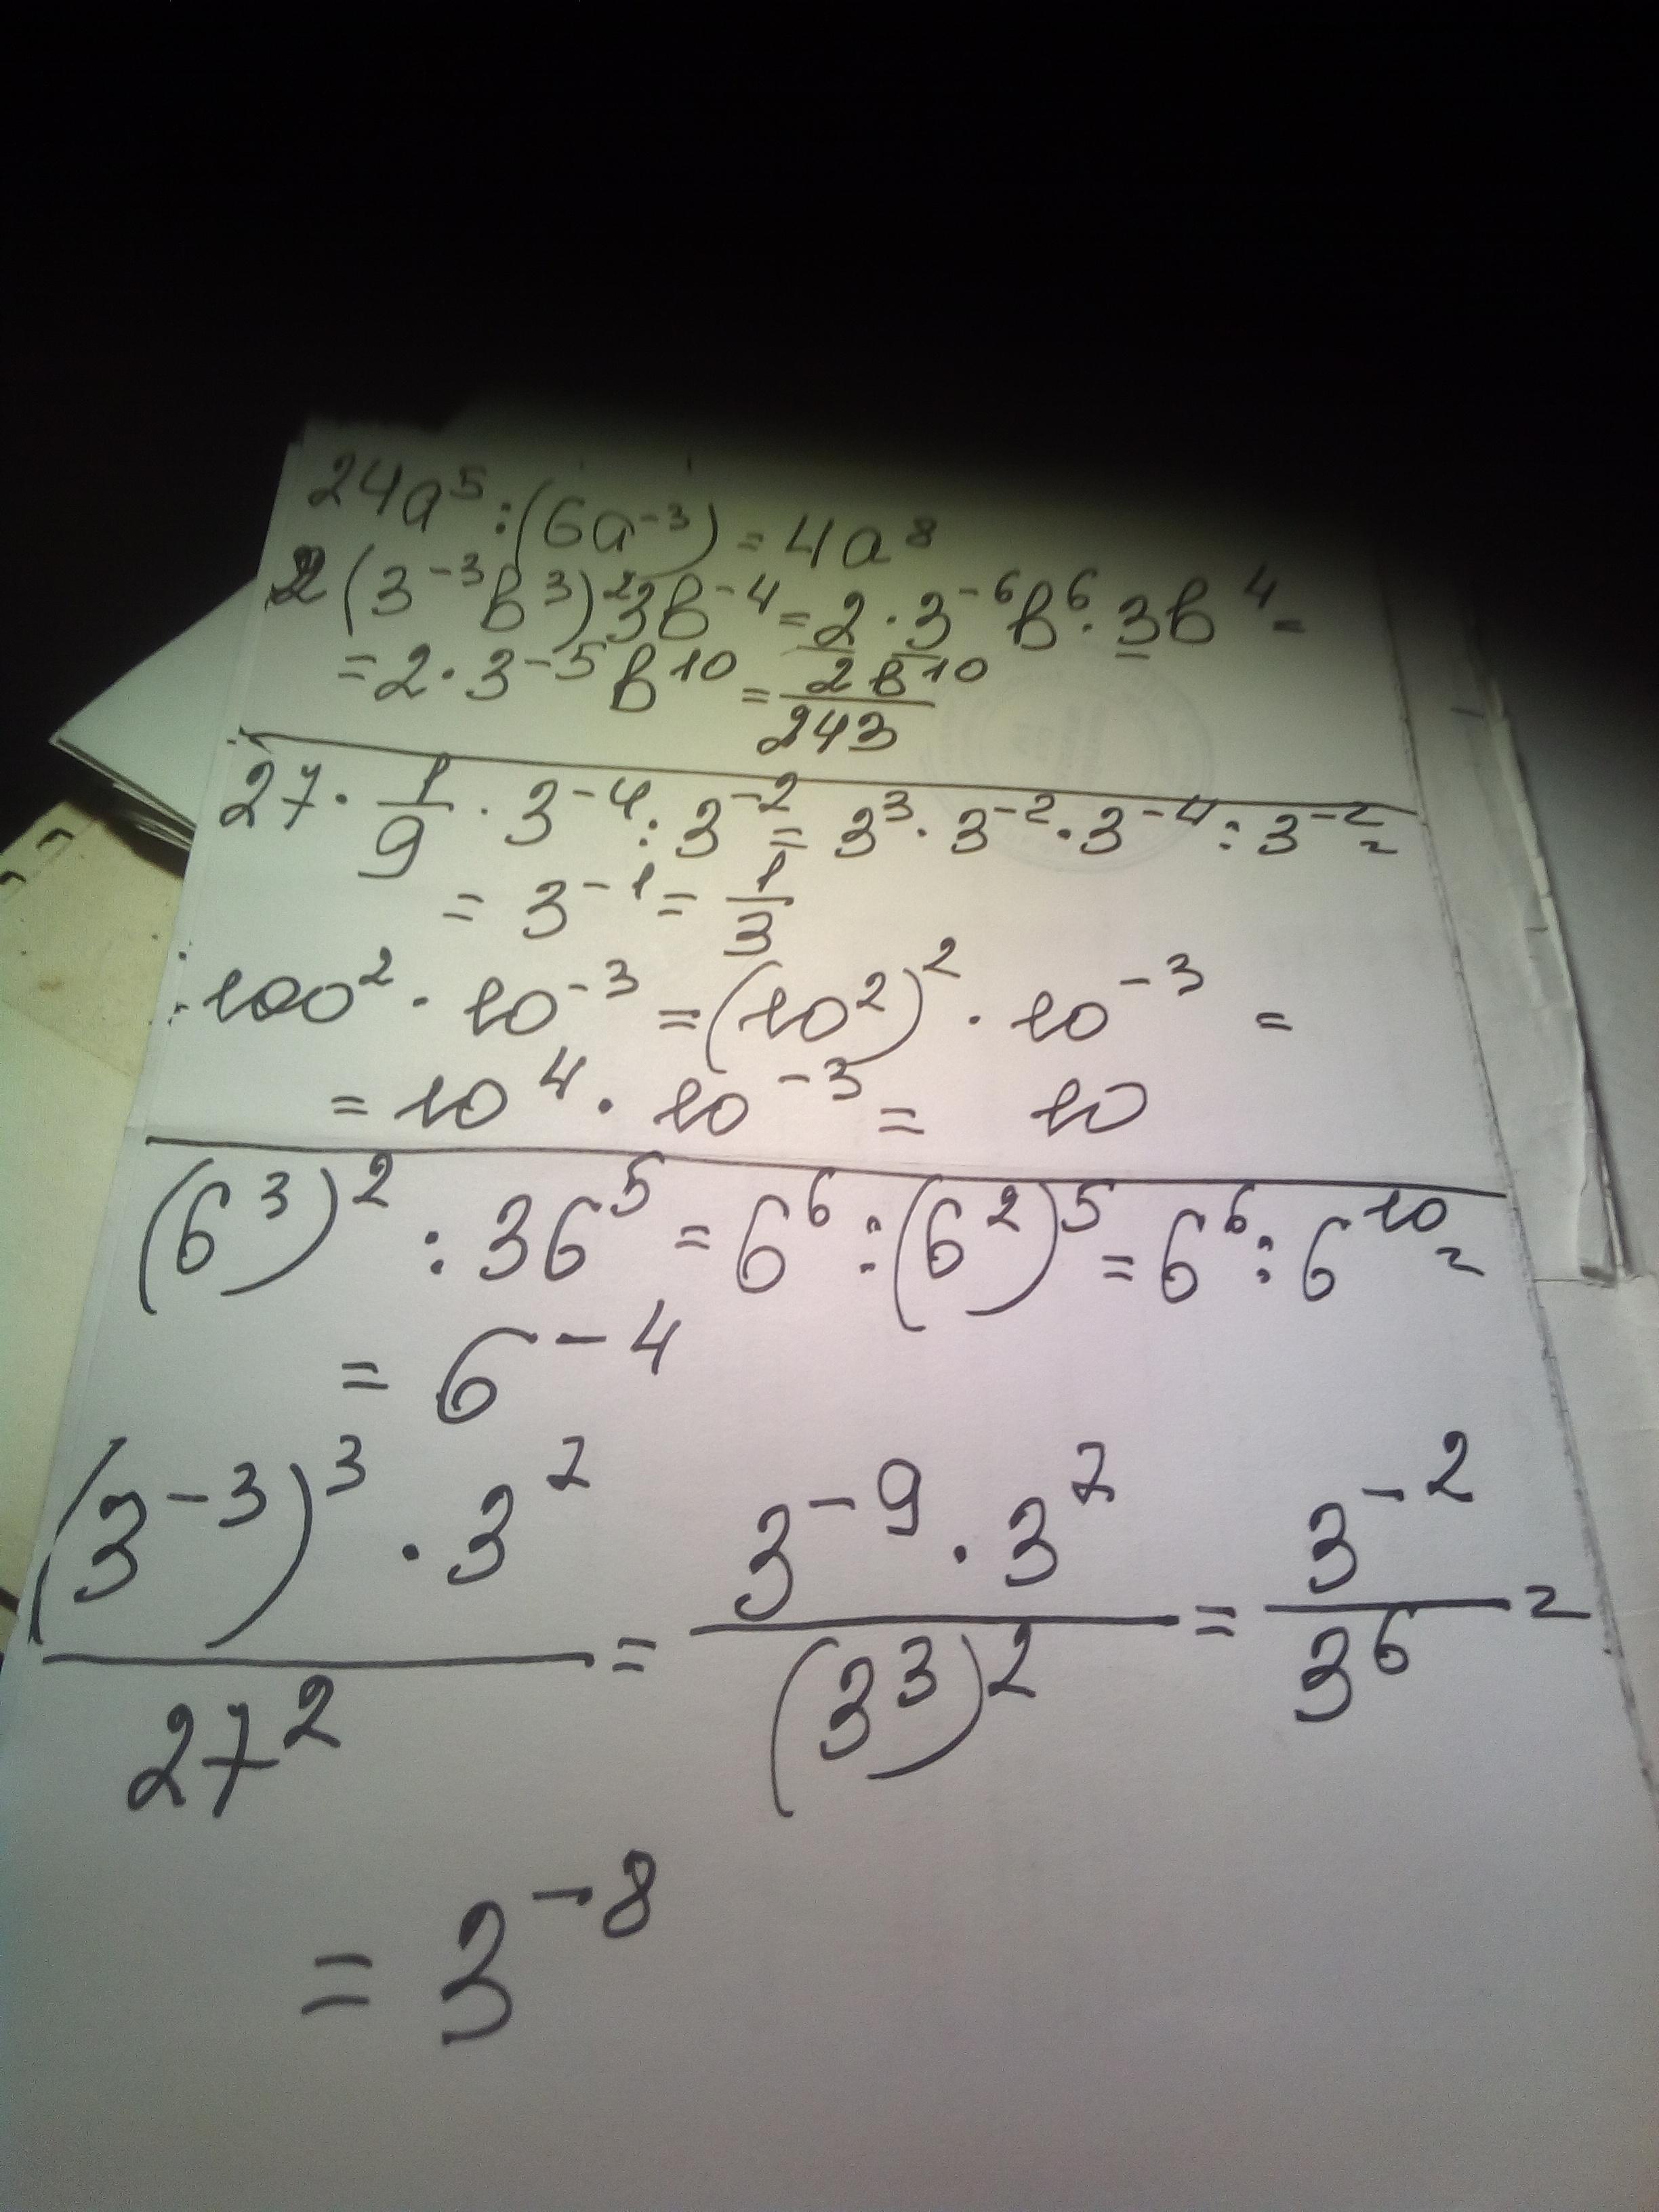 24a⁵ : (6a⁻³) = 4a⁸
2(3⁻³b³)²3b⁻⁴ = 2 · 3⁻⁶b⁶ · 3b⁴ =
= 2 · 3⁻⁵b¹⁰ = 2b¹⁰/243
27 · 1/9 · 3⁻⁴ : 3⁻² = 3³ · 3⁻² · 3⁻⁴ : 3⁻² =
= 3⁻¹ = 1/3
100² · 10⁻³ = (10²)² · 10⁻³ =
= 10⁴ · 10⁻³ = 10
(6³)² : 36⁵ = 6⁶ : (6²)⁵ = 6⁶ : 6¹⁰ =
= 6⁻⁴
(3⁻³)³ · 3²/27² = 3⁻⁹ · 3²/(3³)² = 3⁻²/3⁶ =
= 3⁻⁸